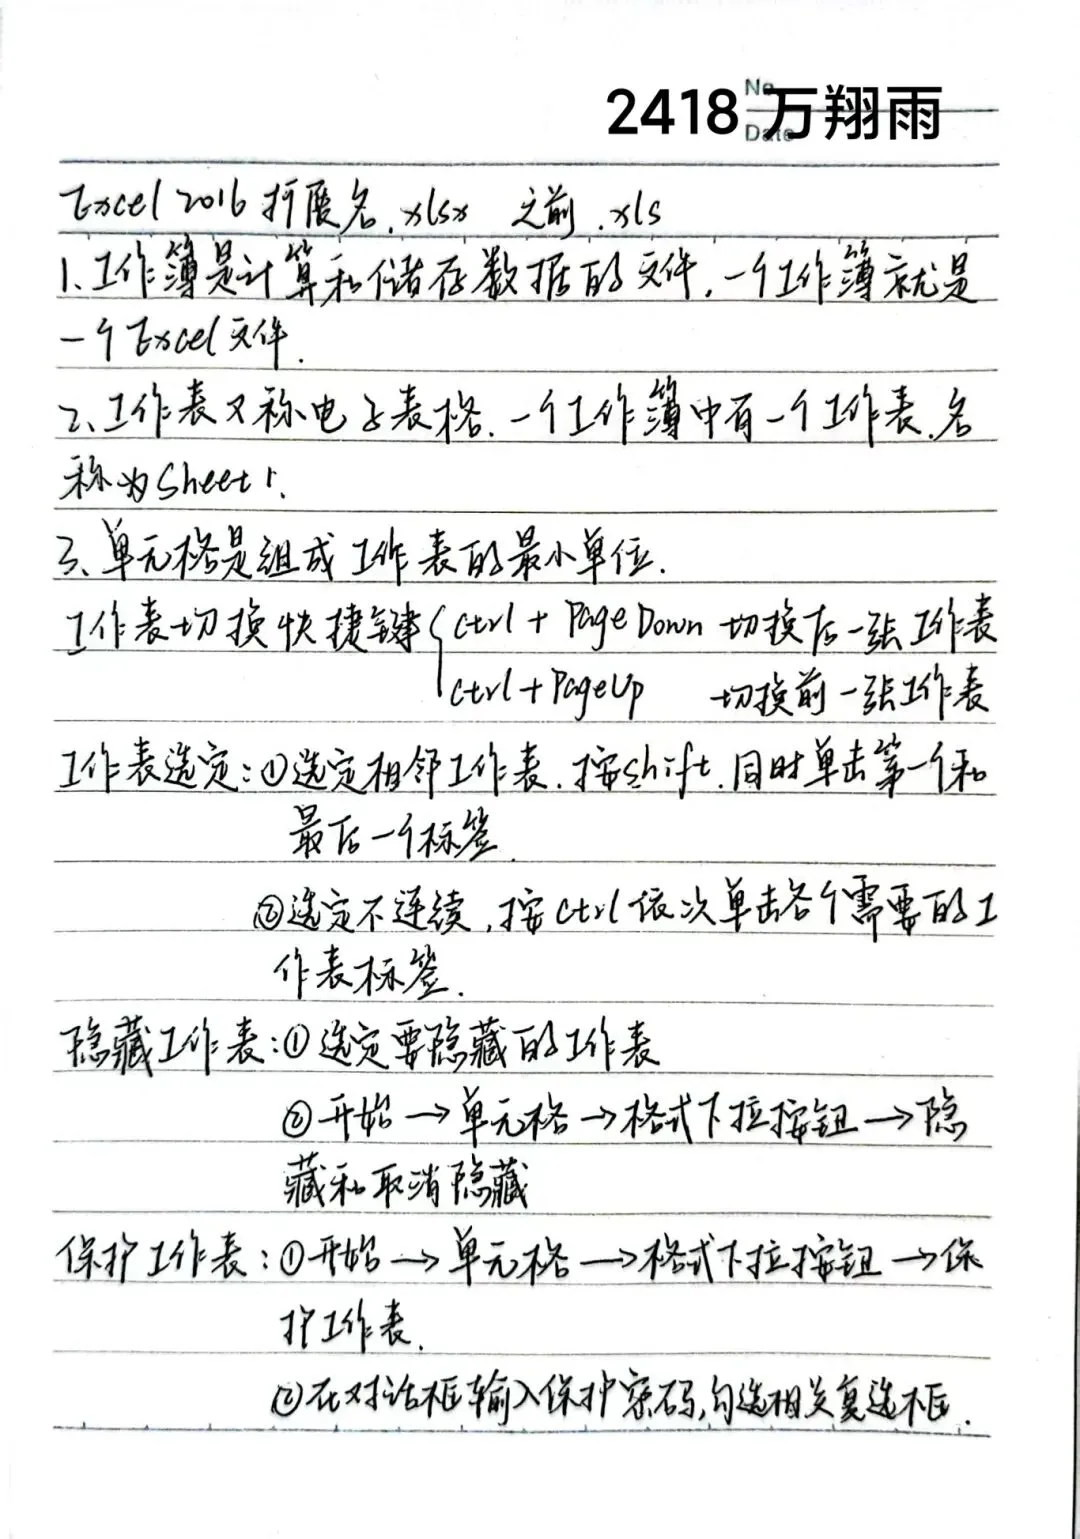 No
2418 万翔雨
Date
Excel 2016 扩展名.xlsx 之前.xls
1、工作簿是计算和储存数据的文件,一个工作簿就是
一个Excel文件.
2、工作表又称电子表格.一个工作簿中有一个工作表.名
称为Sheet1.
3、单元格是组成工作表的最小单位.
工作表切换快捷键{Ctrl+PageDown 切换后一张工作表
Ctrl+PageUp 切换前一张工作表
工作表选定:①选定相邻工作表.按shift.同时单击第一个和
最后一个标签.
②选定不连续,按Ctrl依次单击各个需要的工
作表标签.
隐藏工作表:①选定要隐藏的工作表
②开始→单元格→格式下拉按钮→隐
藏和取消隐藏
保护工作表:①开始→单元格→格式下拉按钮→保
护工作表.
②在对话框输入保护密码,勾选相关复选框.